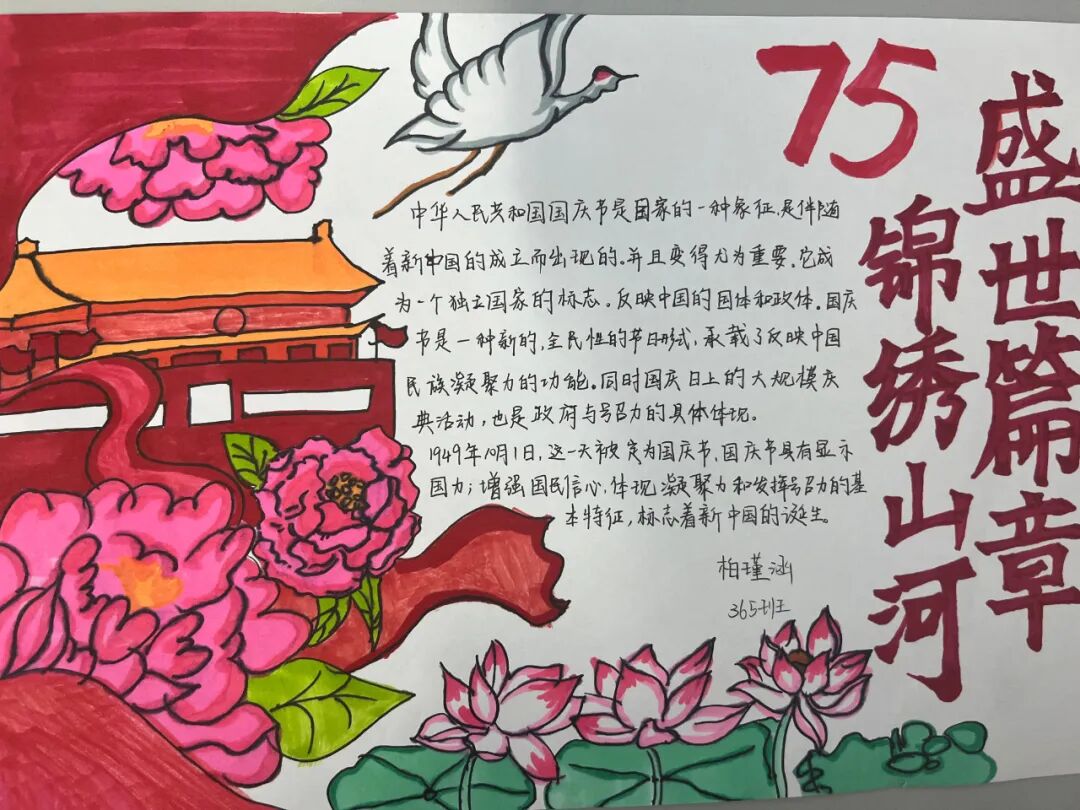 75
盛世篇章
锦绣山河
中华人民共和国国庆节是国家的一种象征,是伴随
着新中国的成立而出现的。并且变得尤为重要。它成
为一个独立国家的标志。反映中国的国体和政体。国庆
节是一种新的,全民性的节日形式,承载了反映中国
民族凝聚力的功能。同时国庆日上的大规模庆
典活动,也是政府与号召力的具体体现。
1949年10月1日,这一天被定为国庆节,国庆节具有显示
国力;增强国民信心,体现凝聚力和发挥号召力的基
本特征,标志着新中国的诞生。
柏瑾涵
365班